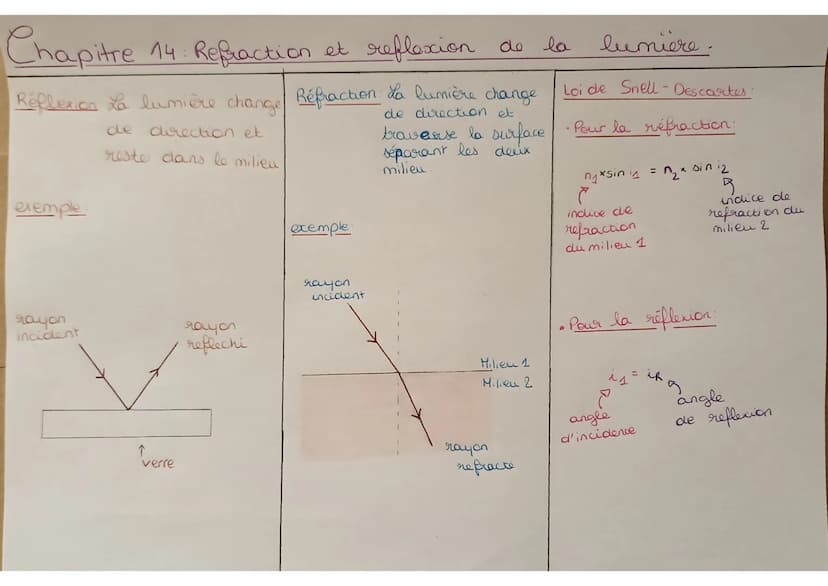 Chapitre 14: Refraction et reflexion de la lumière.
Réflexion: La lumière change
de direction et
reste dans le milieu
exemple:
rayon
incident
rayon
reflechi
verre
Réfraction: La lumière change
de direction et
traverse la surface
séparant les deux
milieu.
exemple:
rayon
incident
Milieu 1
Milieu 2
rayon
refracté
Loi de Snell-Descartes:
• Pour la réfraction:
n1 × sin i1 = n2 × sin i2
indice de
refraction
du milieu 1
indice de
refraction du
milieu 2
• Pour la réflexion:
i1 = iR
angle
d'incidence
angle
de reflexion